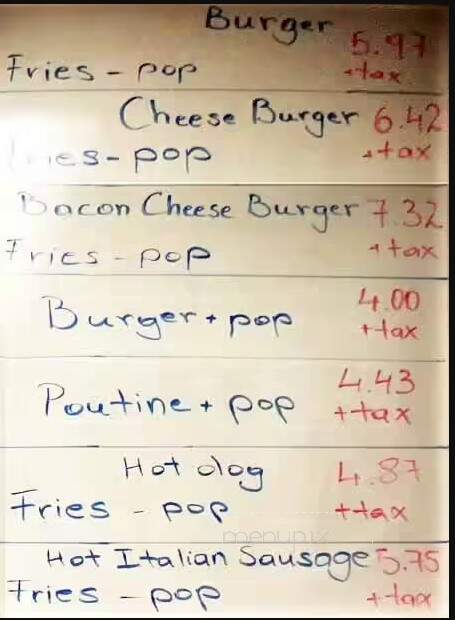 Burger 5.97
Fries - pop +tax
Cheese Burger 6.42
Fries - pop +tax
Bacon Cheese Burger 7.32
Fries - pop +tax
Burger + pop 4.00
+tax
Poutine + pop 4.43
+tax
Hot dog 4.87
Fries - pop +tax
menupix
Hot Italian Sausage 5.75
Fries - pop +tax